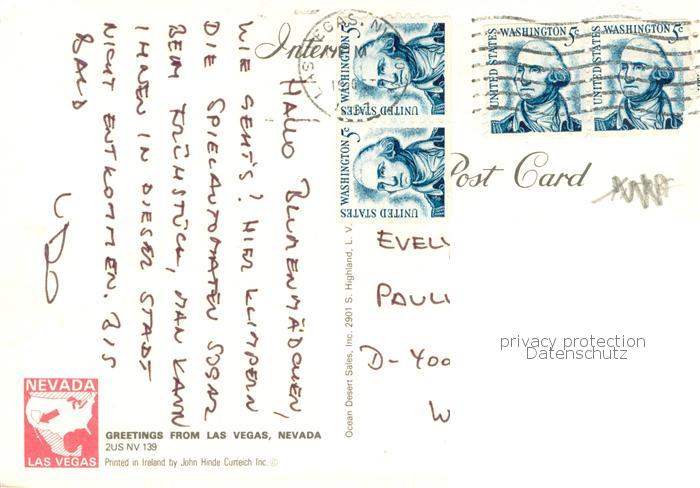 International
Post Card
LAS VEGAS, NV
WASHINGTON 5c
UNITED STATES
WASHINGTON 5c
UNITED STATES
WASHINGTON 5c
UNITED STATES
WASHINGTON 5c
UNITED STATES
HALLO BLUMENMÄDCHEN,
WIE GEHT'S? HIER KLIMPERN
DIE SPIELAUTOMATEN SOGAR
BEIM FRÜHSTÜCK, MAN KANN
IHNEN IN DIESER STADT
NICHT ENTKOMMEN. BIS
BALD
UDO
EVEL
PAUL
D-400
W
privacy protection
Datenschutz
Ocean Desert Sales, Inc. 2901 S. Highland, L. V.
NEVADA
LAS VEGAS
GREETINGS FROM LAS VEGAS, NEVADA
2US NV 139
Printed in Ireland by John Hinde Curteich Inc. ©